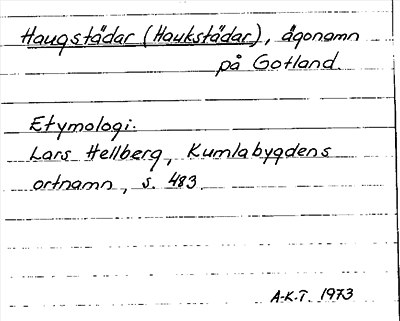 Haugstädar (Haukstädar), ägonamn
på Gotland.
Etymologi:
Lars Hellberg, Kumlabygdens
ortnamn, s. 483.
A-K.T. 1973